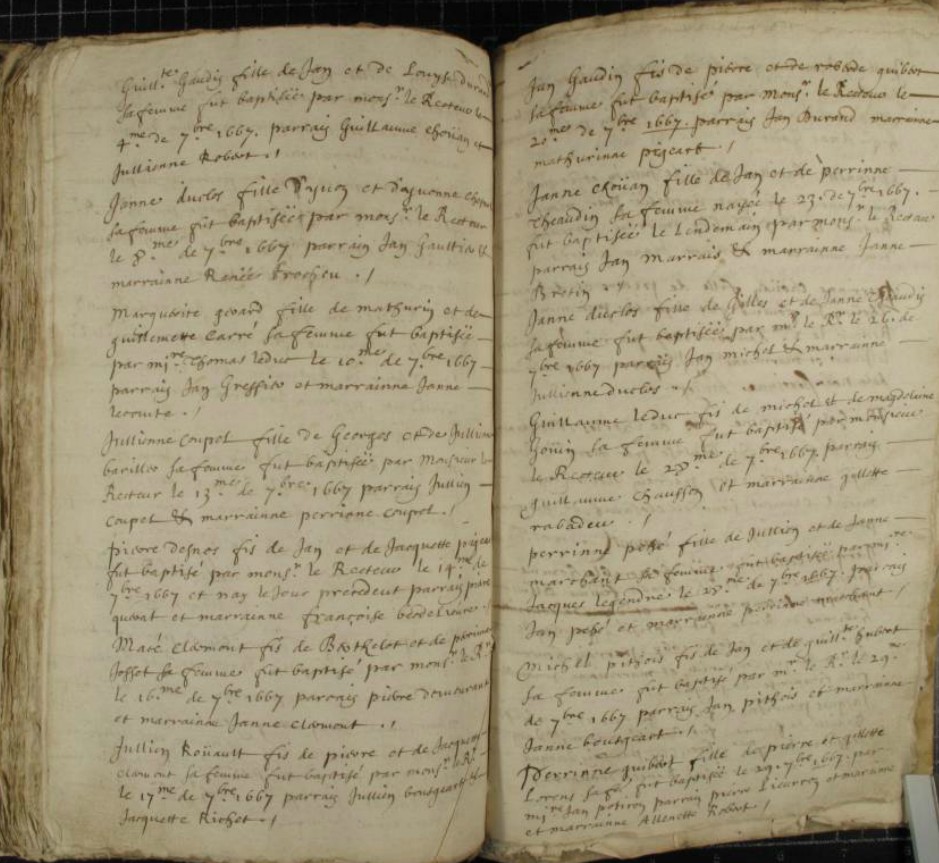 Guill.te Gaudin fille de Jan et de Louyse durand
sa femme fut baptisée par mons.r le Recteur le
4.me de 7.bre 1667. parrain Guillaume choüan et
Jullienne Robert. /
Janne duclos fille d'yvon et d'ayvonne
sa femme fut baptisée par mons.r le Recteur
le 8.me de 7.bre 1667 parrain Jan Gaultier &
marrainne Renée brocheu. /
Marguerite gerard fille de mathurin et de
guillemette Carré sa femme fut baptisée
par mi.re Thomas leduc le 10.me de 7.bre 1667
parrain Jan Greffier et marrainne Janne
lecointe. /
Jullienne Coupel fille de Georges et de Jullienne
bariller sa femme fut baptisée par Monsieur le
Recteur le 13.me de 7.bre 1667 parrain Jullien
Coupel & marrainne perrinne Coupel. /
pierre desnos fis de Jan et de Jacquette
fut baptisé par mons.r le Recteur le 14.me de
7.bre 1667 et nay le Jour precedent parrain pierre
et marrainne françoise
Macé Clermont fis de Barthelot et de perrine
Josset sa femme fut baptisé par mons.r le R.r
le 16.me de 7.bre 1667 parrain pierre
et marrainne Janne Clermont. /
Jullien Roüault fis de pierre et de Jacquette
clermont sa femme fut baptisé par mons.r le R.r
le 17.me de 7.bre 1667 parrain Jullien boutgeart &
Jacquette Richet. /
Jan Gaudin fis de pierre et de roberde quibert
sa femme fut baptisé par mons.r le Recteur le
20.me de 7.bre 1667. parrain Jan Durand marrainne
mathurinne pigeart /
Janne choüan fille de Jan et de perrinne
Theaudin sa femme nayée le 23. de 7.bre 1667.
fut baptisée le Lendemain par mons.r le Recteur
parrain Jan Marrais & marrainne Janne
Bretin
Janne duclos fille de Gilles et de Janne
sa femme fut baptisée par m.r le R.r le 26. de
7.bre 1667 parrain Jan michel & marrainne
Jullienne duclos
Guillaume leduc fis de michel et de magdelaine
sa femme fut baptisé par monsieur
le Recteur le 28.me de 7.bre 1667. parrain
guillaume Chausson et marrainne gillette
rabadeu. /
perrinne pehé fille de Jullien et de Janne
marchant sa femme fut baptisée par mi.re
Jacques legendre le 28.me de 7.bre 1667. parrain
Jan pehé et marrainne perrinne marchant /
Michel pithois fis de Jan et de guill.te hubert
sa femme fut baptisé par m.r le R.r le 29.me
de 7.bre 1667 parrain Jan pithois et marrainne
Janne boutgeart. /
Perrinne quibert fille de pierre et gillette
Lorens sa fe. fut baptisée le 29. 7.bre 1667. par
mi.re Jan potiron parrain pierre et marainne
et marrainne Allenette Robert /